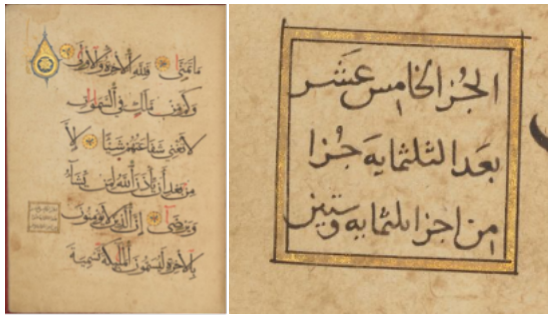 مَا تَمَنَّىٰ فَلِلَّهِ الْآخِرَةُ وَالْأُولَىٰ
وَكَم مِّن مَّلَكٍ فِي السَّمَوَاتِ
لَا تُغْنِي شَفَاعَتُهُمْ شَيْئًا إِلَّا
مِن بَعْدِ أَن يَأْذَنَ اللَّهُ لِمَن يَشَاءُ
وَيَرْضَىٰ إِنَّ الَّذِينَ لَا يُؤْمِنُونَ
بِالْآخِرَةِ لَيُسَمُّونَ الْمَلَئِكَةَ تَسْمِيَةَ
الجُز الخامس عَشَر
بعَد الثلثمايَة جُزا
من اجزا ثلثمايه وستين